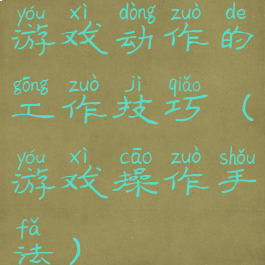 yóu xì dòng zuò de
游戏动作的
gōng zuò jì qiǎo
工作技巧（
yóu xì cāo zuò shǒu
游戏操作手
fǎ
法）